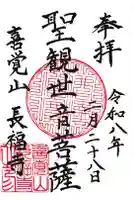 奉拝
令和八年
二月二十八日
聖観世音菩薩
喜覚山
長福寺